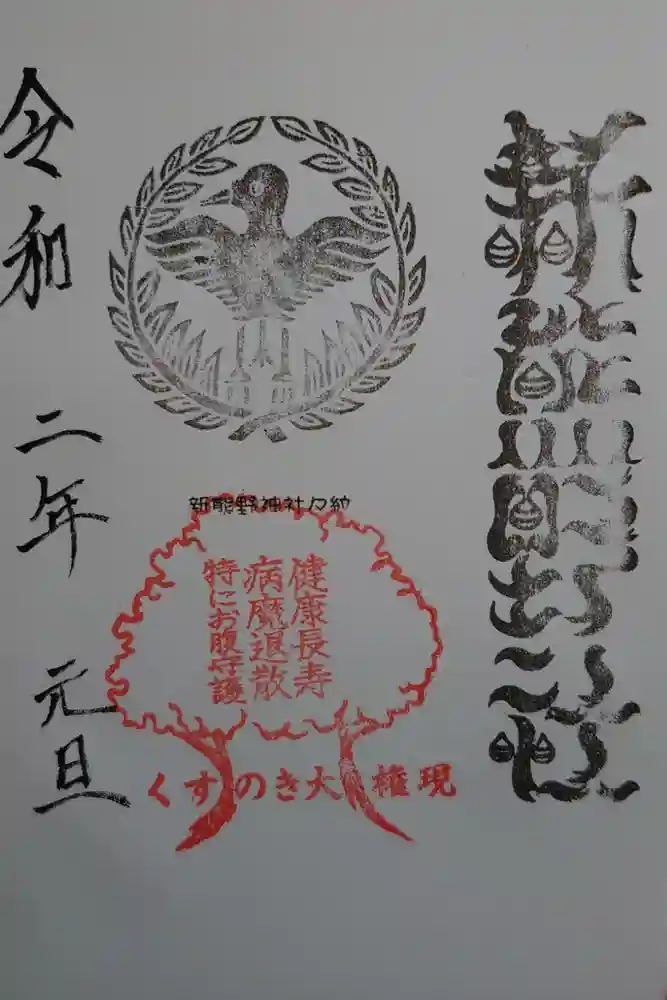 新熊野
新熊野神社
健康長寿
病魔退散
特にお腹守護
くすのき大権現
令和二年元旦